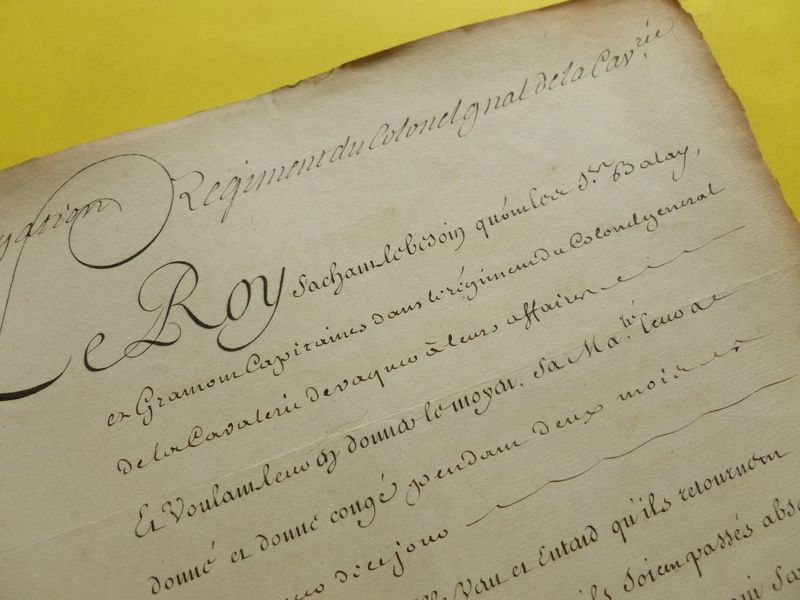 gation Regiment du Colonel gnal de la Cav.rie
Le Roy sachant le besoin qu'ont les Srs Balay,
et Gramont Capitaines dans le régiment du Colonel general
de la Cavalerie de vaquer à leurs affaires
Et Voulant leur en donner le moyen, Sa Ma.té leur a
donné et donne congé pendant deux mois et
de ce jour
Veut et Entend qu'ils retournent
ils soient passés abse